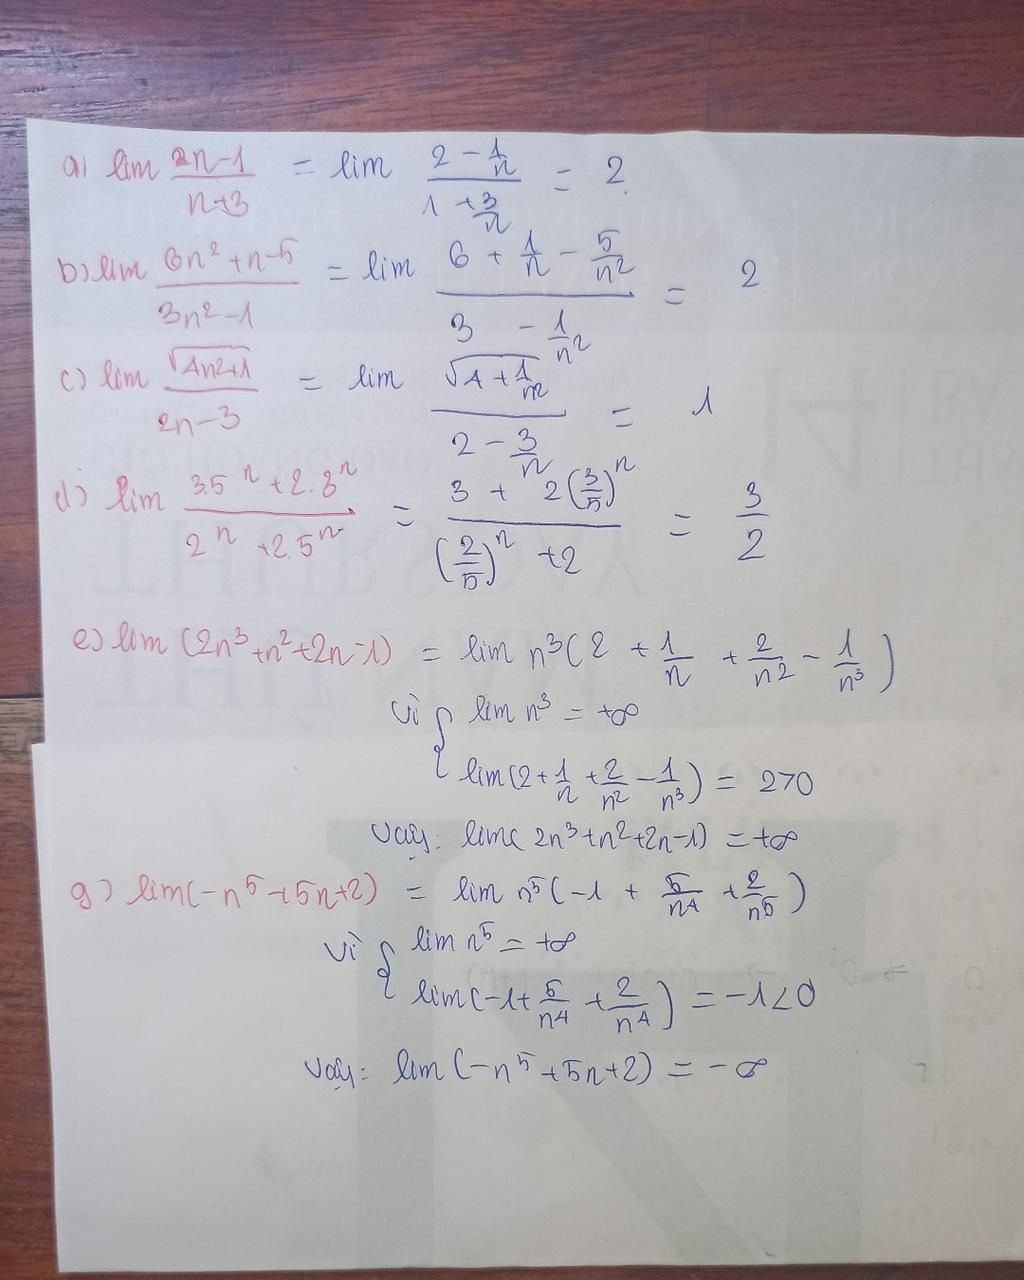 a) lim (2n-1)/(n+3) = lim (2 - 1/n)/(1 + 3/n) = 2
b) lim (6n² + n - 5)/(3n² - 1) = lim (6 + 1/n - 5/n²)/(3 - 1/n²) = 2
c) lim √(4n²+1)/(2n-3) = lim √(4 + 1/n²)/(2 - 3/n) = 1
d) lim (3.5ⁿ + 2.3ⁿ)/(2ⁿ + 2.5ⁿ) = (3 + 2(3/5)ⁿ)/((2/5)ⁿ + 2) = 3/2
e) lim (2n³+n²+2n-1) = lim n³(2 + 1/n + 2/n² - 1/n³)
vì { lim n³ = +∞
lim(2 + 1/n + 2/n² - 1/n³) = 2>0
vậy: lim( 2n³+n²+2n-1) = +∞
g) lim(-n⁵+5n+2) = lim n⁵(-1 + 5/n⁴ + 2/n⁵)
vì { lim n⁵ = +∞
lim(-1 + 5/n⁴ + 2/n⁴) = -1<0
vậy: lim (-n⁵+5n+2) = -∞